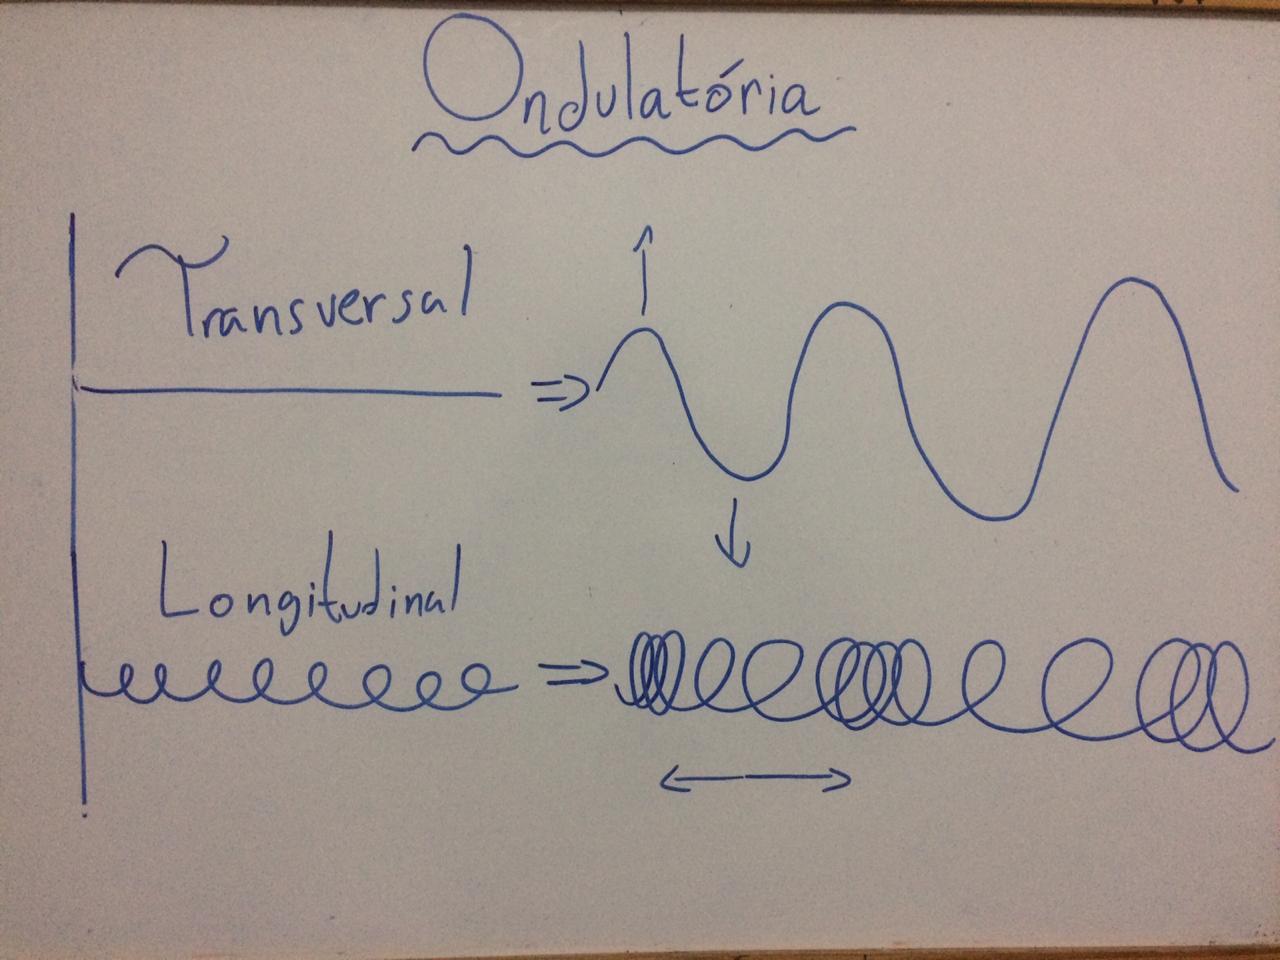 Ondulatória
Transversal
Longitudinal